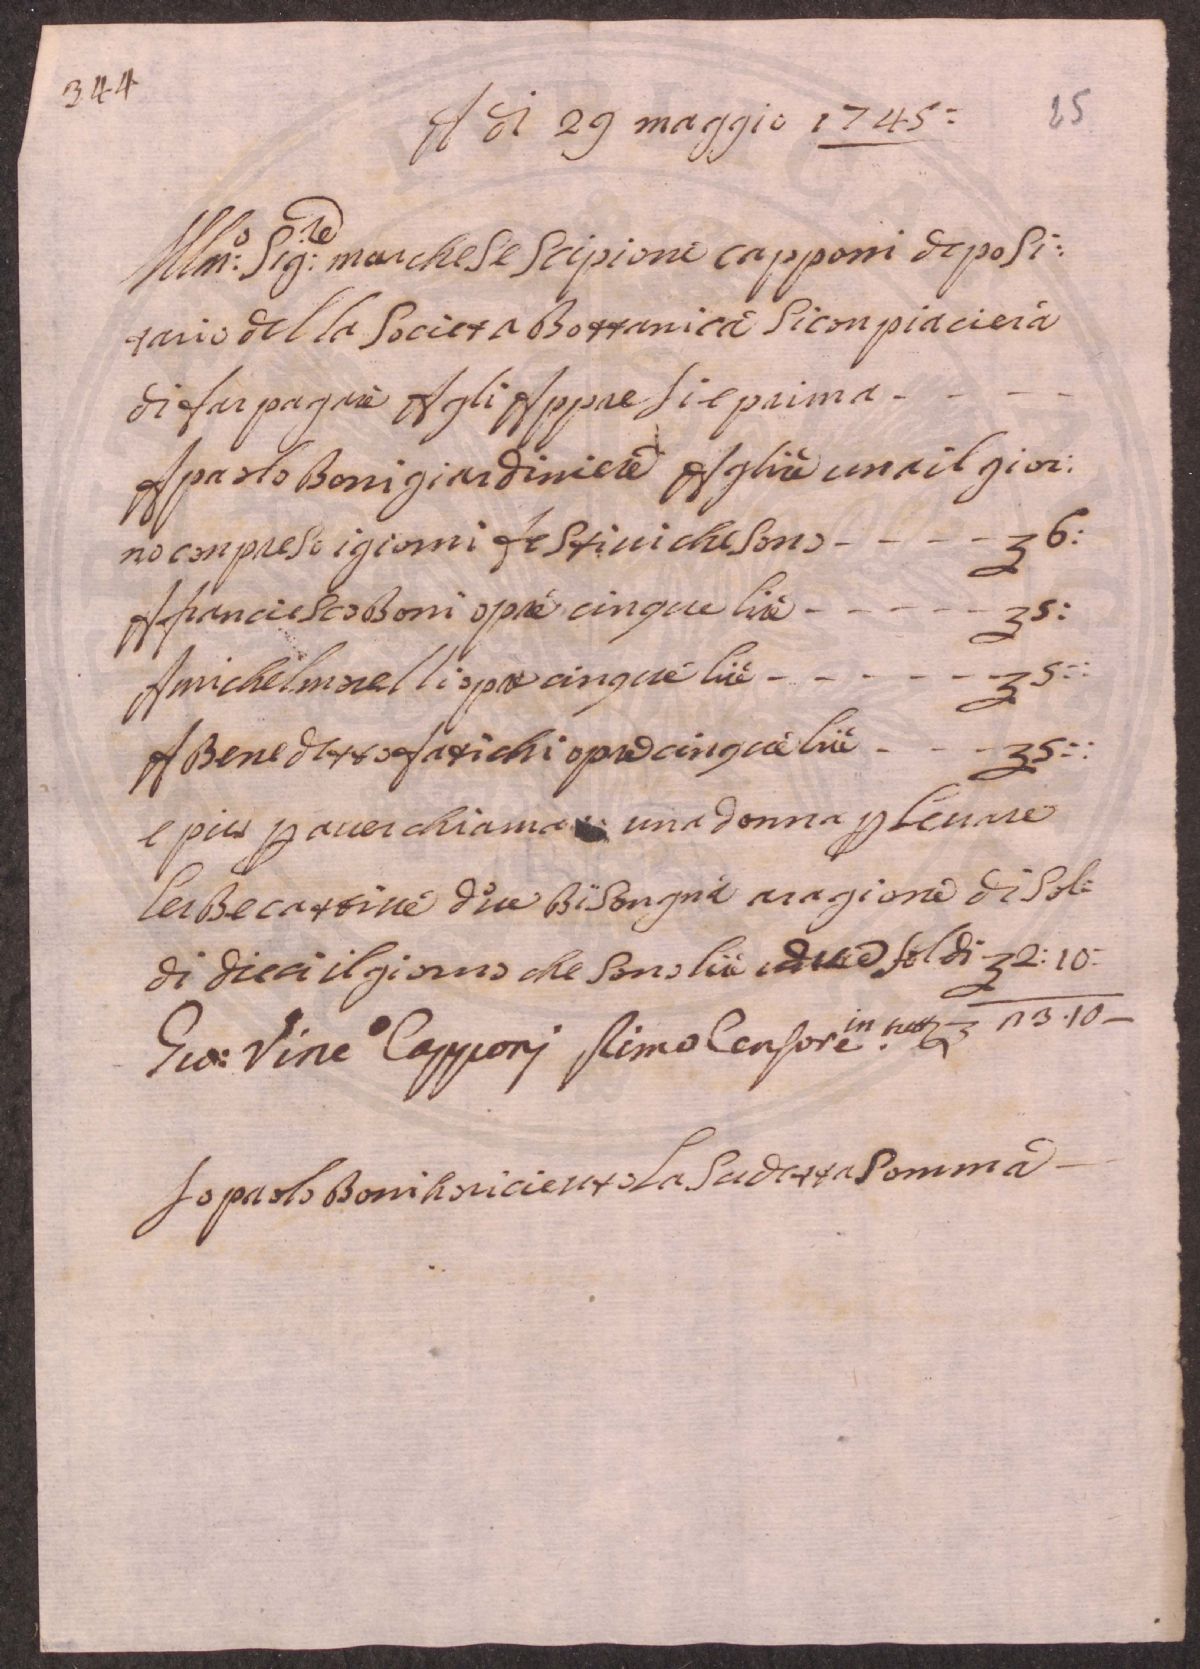 344
A di 29 maggio 1745:
25
Illmo: Sig:re marchese Scipione capponi deposi:
tario della Societta Bottanica Si conpiaciera
di far pagare Agli Appresi e prima - - - -
A paolo Boni giardiniere A glire una il gior:
no conpreso i giorni festiui che sono - - - - - 6:
A franciesco Boni opre cinque lire - - - - - - 5:
A michel morelli opre cinque lire - - - - - - 5::
A Benedetto fatichi opre cinque lire - - - 5::
e piu p auer chiama una donna p leuare
lerbe cattiue due Bisongnia a ragione di sol:
di dieci il giorno che sono lire due soldi 2:10:
Gio: Vinc° Capponj Primo Censore in tutto 23.10 -
Io paolo Boni ho riceuto La Sudetta Somma -